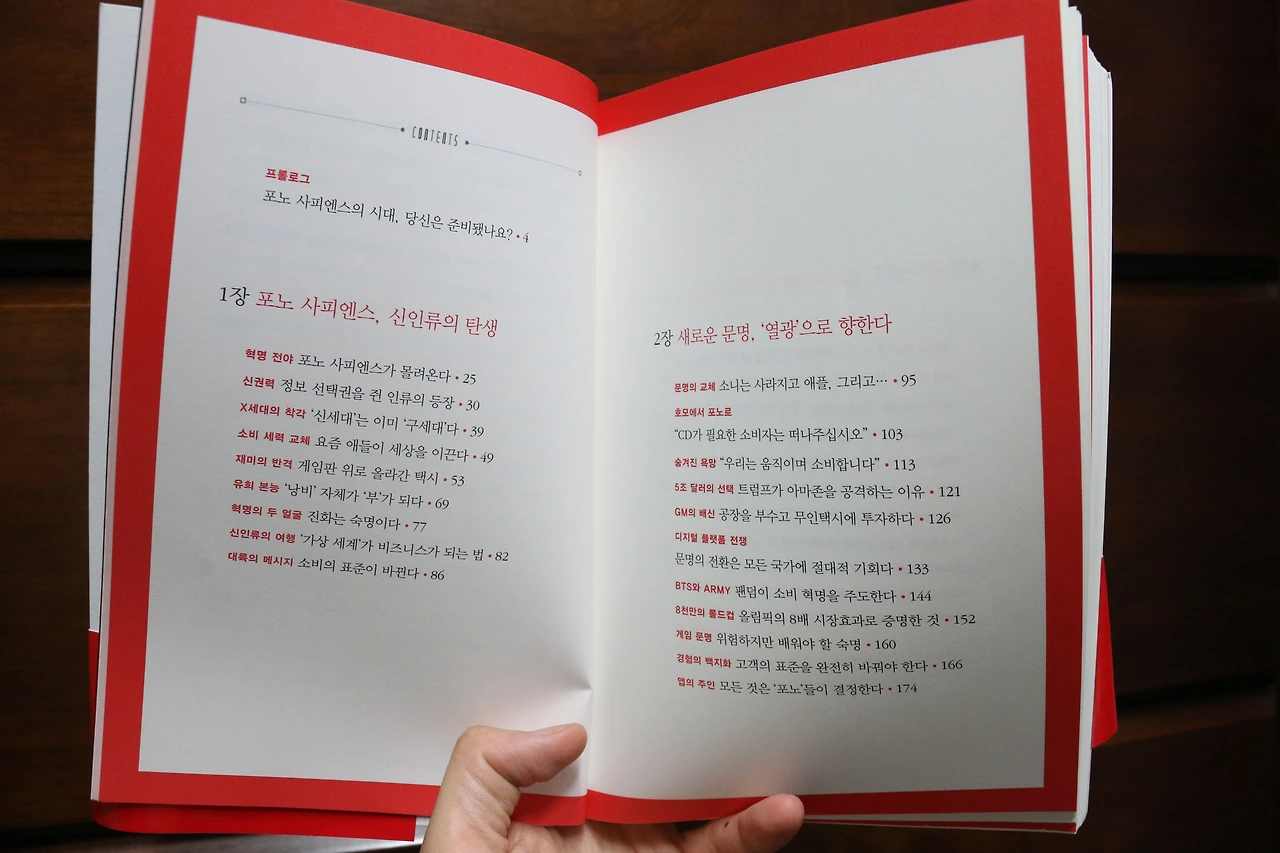 CONTENTS
프롤로그
포노 사피엔스의 시대, 당신은 준비됐나요? • 4
1장 포노 사피엔스, 신인류의 탄생
혁명 전야 포노 사피엔스가 몰려온다 • 25
신권력 정보 선택권을 쥔 인류의 등장 • 30
X세대의 착각 ‘신세대’는 이미 ‘구세대’다 • 39
소비 세력 교체 요즘 애들이 세상을 이끈다 • 49
재미의 반격 게임판 위로 올라간 택시 • 53
유희 본능 ‘낭비’ 자체가 ‘부’가 되다 • 69
혁명의 두 얼굴 진화는 숙명이다 • 77
신인류의 여행 ‘가상 세계’가 비즈니스가 되는 법 • 82
대륙의 메시지 소비의 표준이 바뀐다 • 86
2장 새로운 문명, ‘열광’으로 향한다
문명의 교체 소니는 사라지고 애플, 그리고… • 95
호모에서 포노로
“CD가 필요한 소비자는 떠나주십시오” • 103
숨겨진 욕망 “우리는 움직이며 소비합니다” • 113
5조 달러의 선택 트럼프가 아마존을 공격하는 이유 • 121
GM의 배신 공장을 부수고 무인택시에 투자하다 • 126
디지털 플랫폼 전쟁
문명의 전환은 모든 국가에 절대적 기회다 • 133
BTS와 ARMY 팬덤이 소비 혁명을 주도한다 • 144
8천만의 롤드컵 올림픽의 8배 시장효과로 증명한 것 • 152
게임 문명 위험하지만 배워야 할 숙명 • 160
경험의 백지화 고객의 표준을 완전히 바꿔야 한다 • 166
앱의 주인 모든 것은 ‘포노’들이 결정한다 • 174